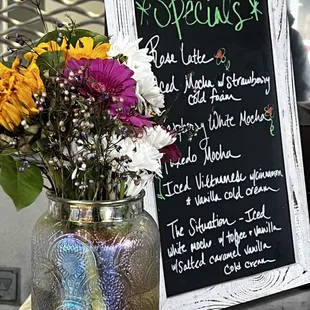 *Specials*
Rose Latte
Iced Mocha w/strawberry
cold foam
White Mocha
Tuxedo Mocha
Iced Vietnamese w/cinnamon
+ vanilla cold cream
The Situation - Iced
white mocha w/ toffee + vanilla
w/salted caramel vanilla
cold cream